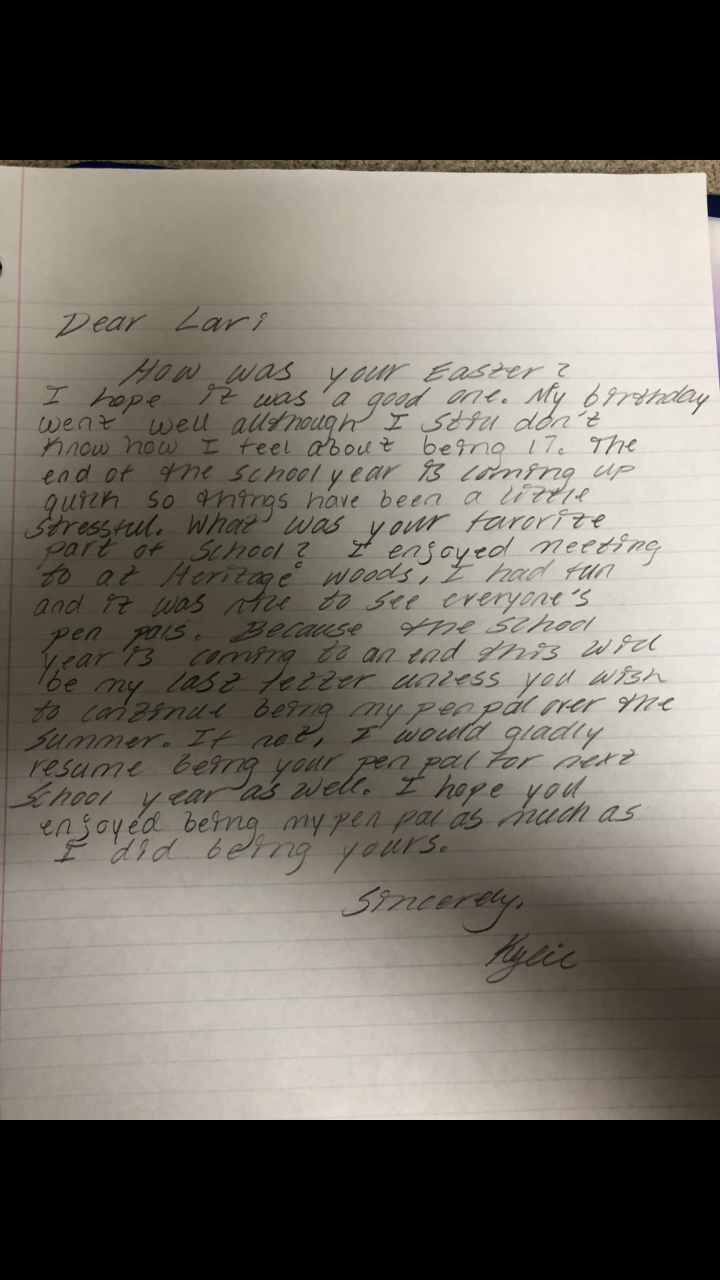 Dear Lari
How was your Easter?
I hope it was a good one. My birthday
went well although I still don't
know how I feel about being 17. The
end of the school year is coming up
quick so things have been a little
stressful. What was your favorite
part of school? I enjoyed meeting
to at Heritage woods, I had fun
and it was nice to see everyone's
pen pals. Because the school
year is coming to an end this will
be my last letter unless you wish
to continue being my pen pal over the
summer. If not, I would gladly
resume being your pen pal for next
school year as well. I hope you
enjoyed being my pen pal as much as
I did being yours.
Sincerely,
Kylie